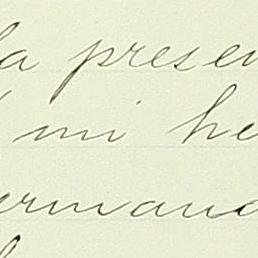 la presen
mi he
ermana